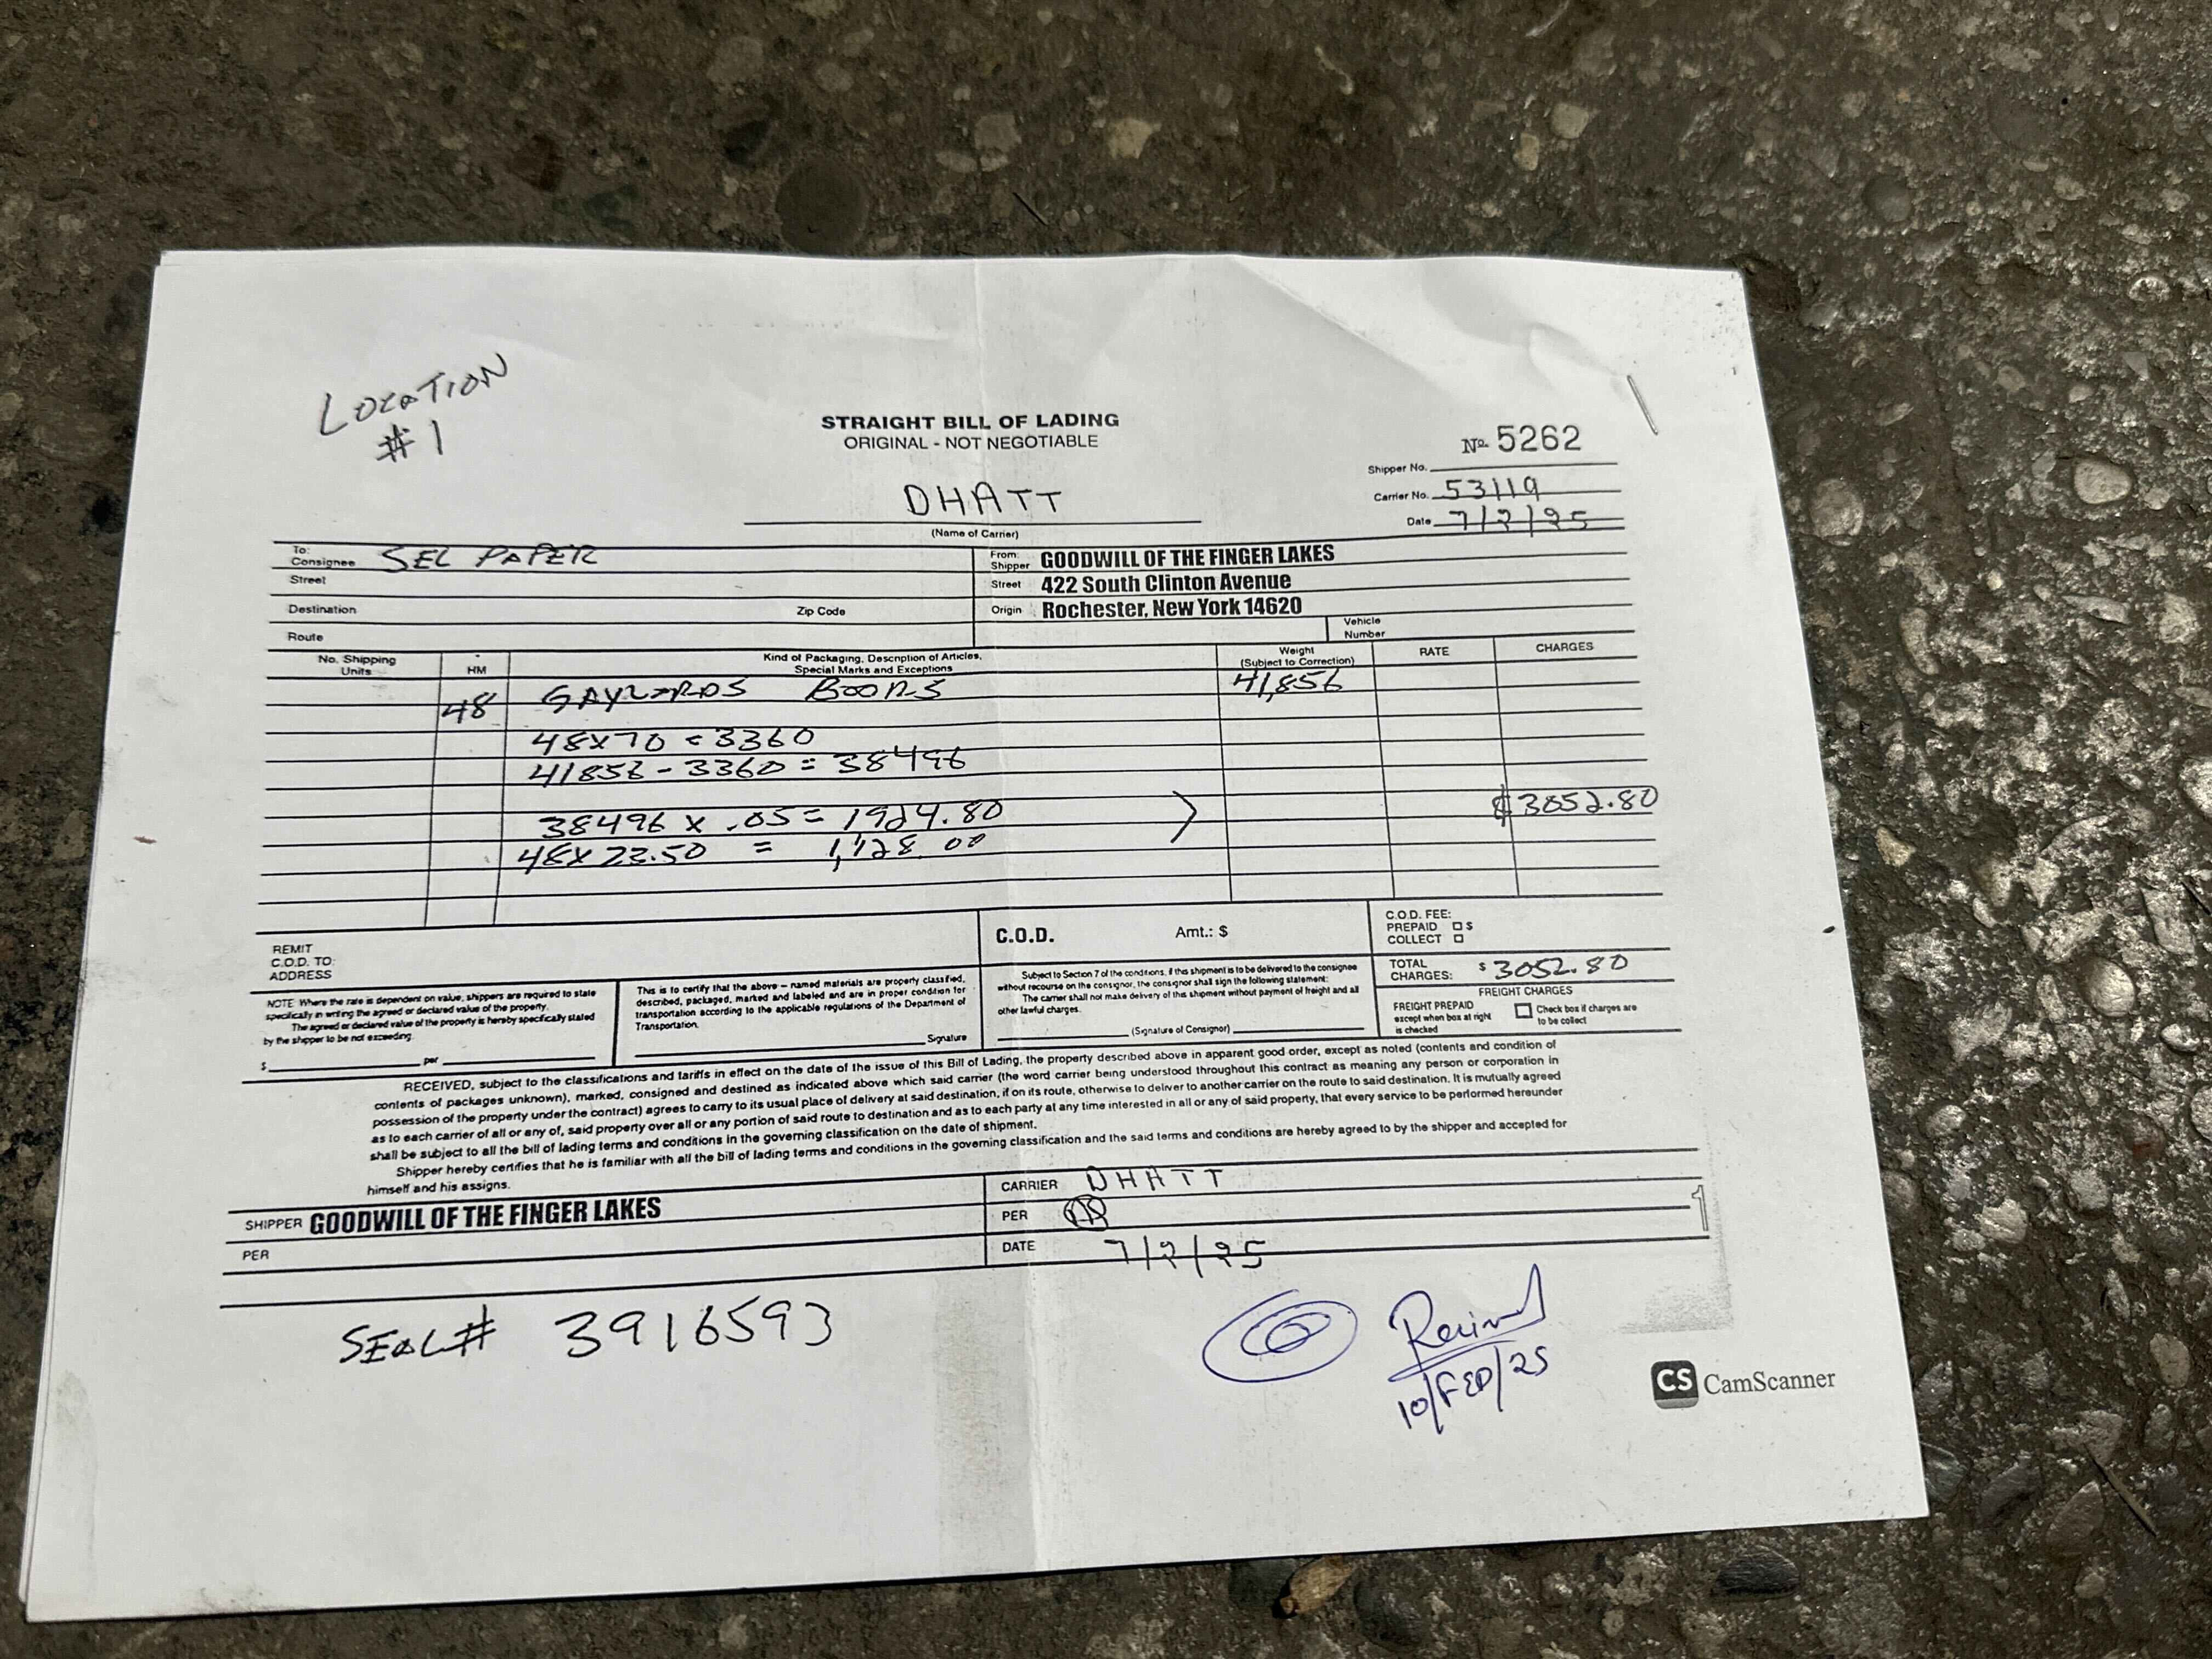 LOCATION
#1
STRAIGHT BILL OF LADING
ORIGINAL - NOT NEGOTIABLE
No. 5262
Shipper No.
Carrier No. 53119
Date 7/2/25
DHATT
(Name of Carrier)
To:
Consignee SEL PAPER
Street
Destination Zip Code
Route
From:
Shipper GOODWILL OF THE FINGER LAKES
Street 422 South Clinton Avenue
Origin Rochester, New York 14620
Vehicle
Number
No. Shipping
Units
HM
Kind of Packaging, Description of Articles,
Special Marks and Exceptions
Weight
(Subject to Correction)
RATE
CHARGES
48 GAYLORDS BOOKS 41,856
48x70 = 3360
41856 - 3360 = 38496
38496 x .05 = 1924.80
48x23.50 = 1,128.00
$3052.80
REMIT
C.O.D. TO:
ADDRESS
C.O.D. Amt.: $
C.O.D. FEE:
PREPAID $
COLLECT
TOTAL
CHARGES: $ 3052.80
NOTE: Where the rate is dependent on value, shippers are required to state
specifically in writing the agreed or declared value of the property.
The agreed or declared value of the property is hereby specifically stated
by the shipper to be not exceeding.
$ per
This is to certify that the above – named materials are property classified,
described, packaged, marked and labeled and are in proper condition for
transportation according to the applicable regulations of the Department of
Transportation.
Signature
Subject to Section 7 of the conditions, if this shipment is to be delivered to the consignee
without recourse on the consignor, the consignor shall sign the following statement:
The carrier shall not make delivery of this shipment without payment of freight and all
other lawful charges.
(Signature of Consignor)
FREIGHT CHARGES
FREIGHT PREPAID
except when box at right
is checked
Check box if charges are
to be collect
RECEIVED, subject to the classifications and tariffs in effect on the date of the issue of this Bill of Lading, the property described above in apparent good order, except as noted (contents and condition of
contents of packages unknown), marked, consigned and destined as indicated above which said carrier (the word carrier being understood throughout this contract as meaning any person or corporation in
possession of the property under the contract) agrees to carry to its usual place of delivery at said destination, if on its route, otherwise to deliver to another carrier on the route to said destination. It is mutually agreed
as to each carrier of all or any of, said property over all or any portion of said route to destination and as to each party at any time interested in all or any of said property, that every service to be performed hereunder
shall be subject to all the bill of lading terms and conditions in the governing classification on the date of shipment.
Shipper hereby certifies that he is familiar with all the bill of lading terms and conditions in the governing classification and the said terms and conditions are hereby agreed to by the shipper and accepted for
himself and his assigns.
SHIPPER GOODWILL OF THE FINGER LAKES
PER
CARRIER DHATT
PER
DATE 7/2/25
1
SEAL# 3916593
Received
10/FEB/25
CS CamScanner